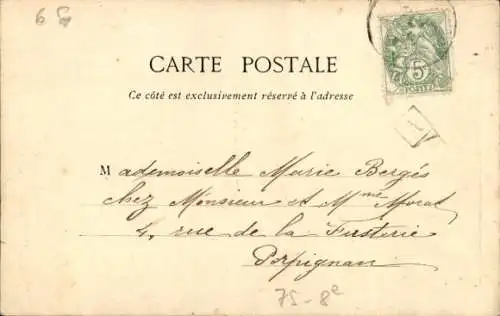 6 G
CARTE POSTALE
Ce côté est exclusivement réservé à l'adresse
5
POSTES
Mademoiselle Marie Bergés
chez Monsieur et Mme Morat
4, rue de la Fusterie
Perpignan
75-8e